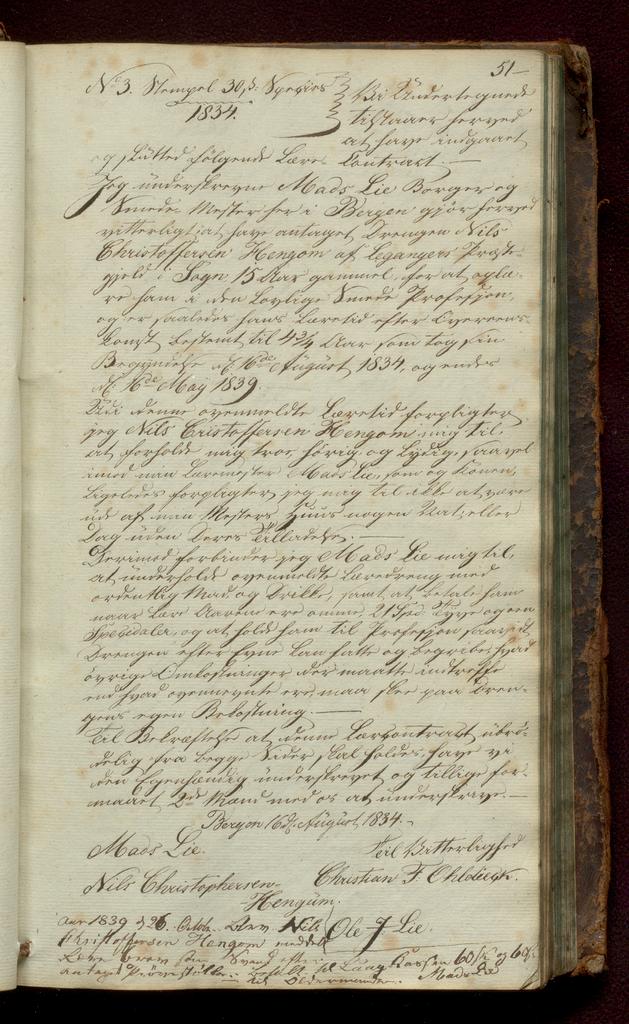 51-
No 3. Stempel 30 ß: Species
1834.
Vi Undertegnede
tilstaaer herved
at have indgaaet
og slutted følgende Lære Contract. —
Jeg underskrevne Mads Lie Borger og
Smede Mester her i Bergen gjør herved
vitterligt, at have antaget Drengen Nils
Christoffersen Hengom af Leganger Præste-
gjeld i Sogn 15 Aar gammel, for at oplæ-
re ham i den lovlige Smede Profesjon,
og er saaledes hans Læretid efter Overeens-
komst bestemt til 4 3/4 Aar som tog sin
Begyndelse d. 16de August 1834, og endes
d. 16de May 1839.
Udi denne ovenmeldte Læretid forpligter
jeg Nils Cristoffersen Hengom mig til,
at forholde mig troe, hørig og lydig, saavel
imod min Læremester Mads Lie, som og Konen,
ligeledes forpligter jeg mig til ikke at være
ude af min Mesters Huus nogen Nat eller
Dag uden Deres Tilladelse. —
Derimod forbinder jeg Mads Lie mig til,
at underholde ovenmeldte Læredreng med
ordentlig Mad og Drikke, samt at betale ham
naar Lære Aarene ere omme, 21 Spd: Tyve og een
Speciedaler, og at holde ham til Profesjon saavidt
Drengen efter Evne kan fatte og begribe, hvad
øvrige Omkostninger der maatte indtreffe
end hvad ovennevnte ere maa skee paa Dren-
gens egen Bekostning. —
Til Bekræftelse at denne Lærcontract ubrø-
delig fra begge Sider skal holdes, have vi
den Egenhændig underskrevet og tillige for-
maaet 2de Mænd med os at underskrive. —
Bergen 16de August 1834. —
Mads Lie.
Til Vitterlighed
Nils Christophersen
Hengum.
Christian F. Ohldieck.
Ole J Lie.
Aar 1839 d 26. Octobr. blev Nils
Christoffersen Hengom meddelt
Lære brev som Svend efter
antaget Prøvestükke. betalt til Laug Kassen 60 ß og 60 ß
til Oldermanden. Mads Lie